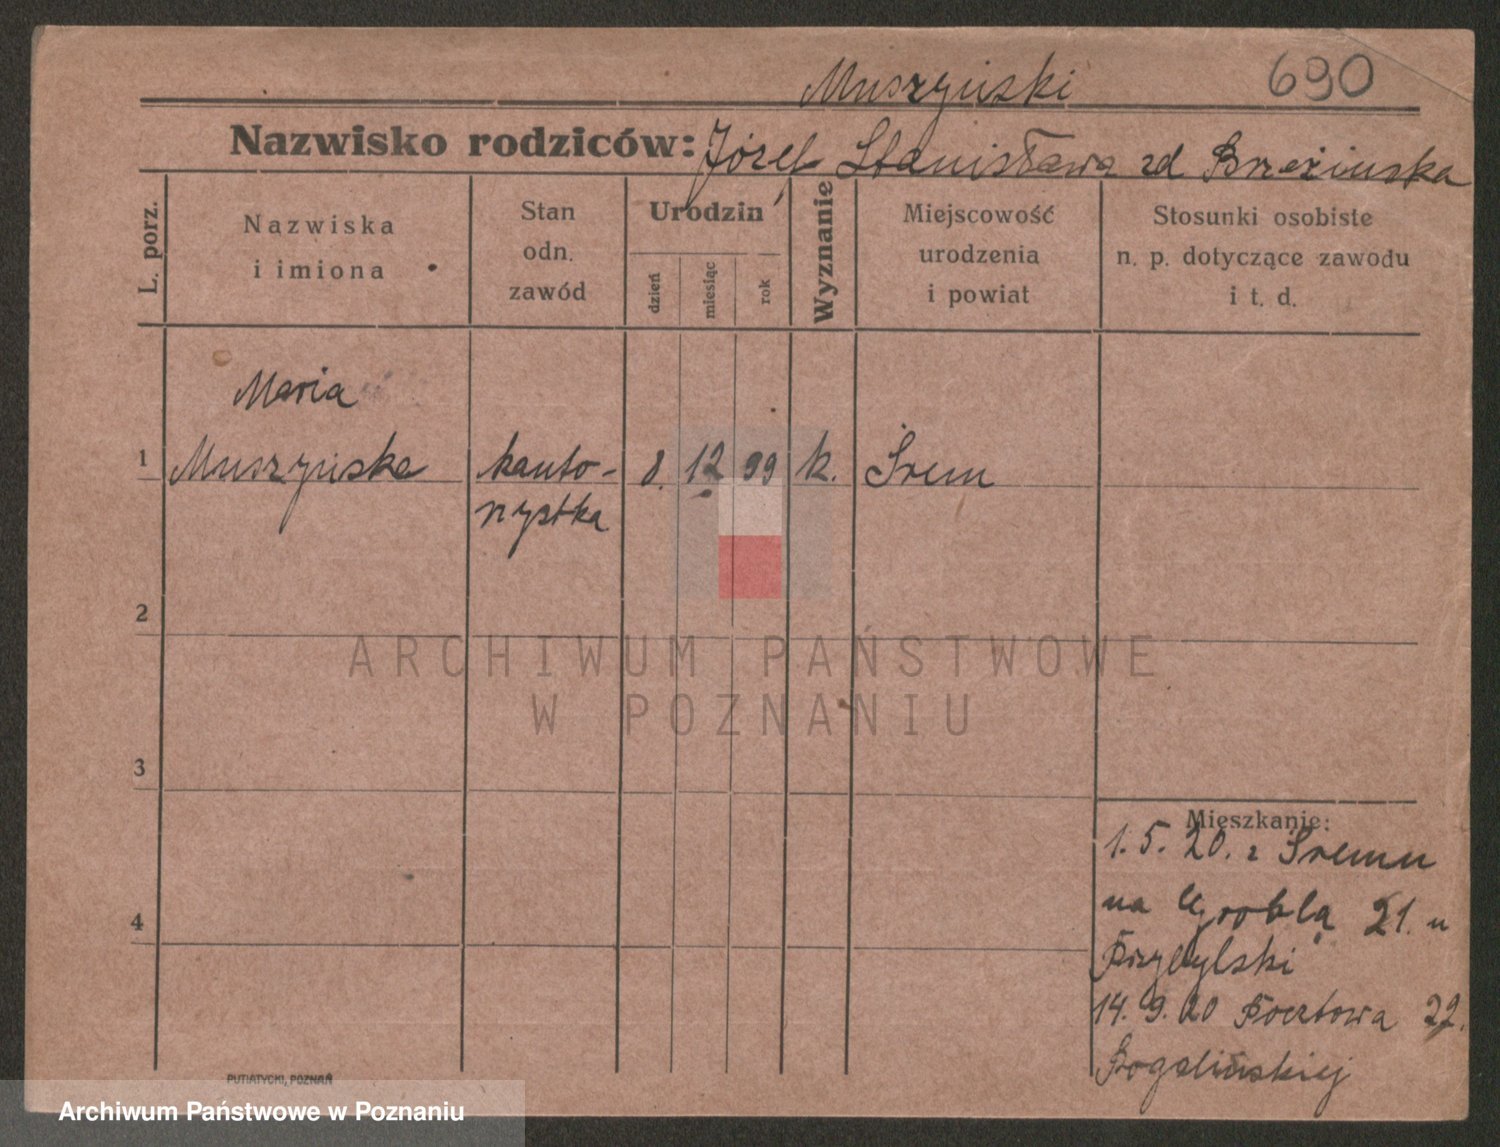 Muszyński 690
Nazwisko rodziców: Józef Stanisława zd Brzezińska
L. porz.
Nazwiska
i imiona
Stan
odn.
zawód
Urodzin
dzień
miesiąc
rok
Wyznanie
Miejscowość
urodzenia
i powiat
Stosunki osobiste
n. p. dotyczące zawodu
i t. d.
Maria
1 Muszyńska kanto- 8. 12 99 k. Śrem
rzystka
2
ARCHIWUM PAŃSTWOWE
W POZNANIU
3
Mieszkanie:
1. 5. 20. z Śremu
na Grobla 21. u
4
Przybylski
14. 9. 20 Pocztowa 22.
PUTIATYCKI, POZNAŃ
Archiwum Państwowe w Poznaniu